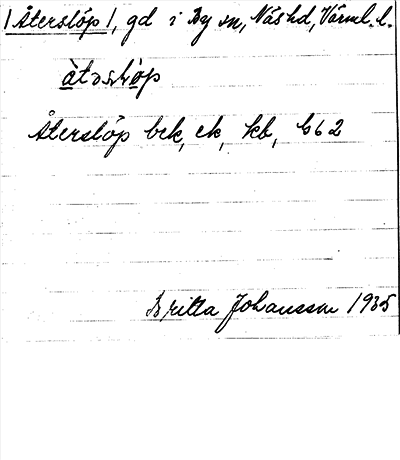 /Återslöp/, gd i By sn, Näshd, Värml. l.
Återslöp bek, ek, kb, G62
Britta Johansson 1935